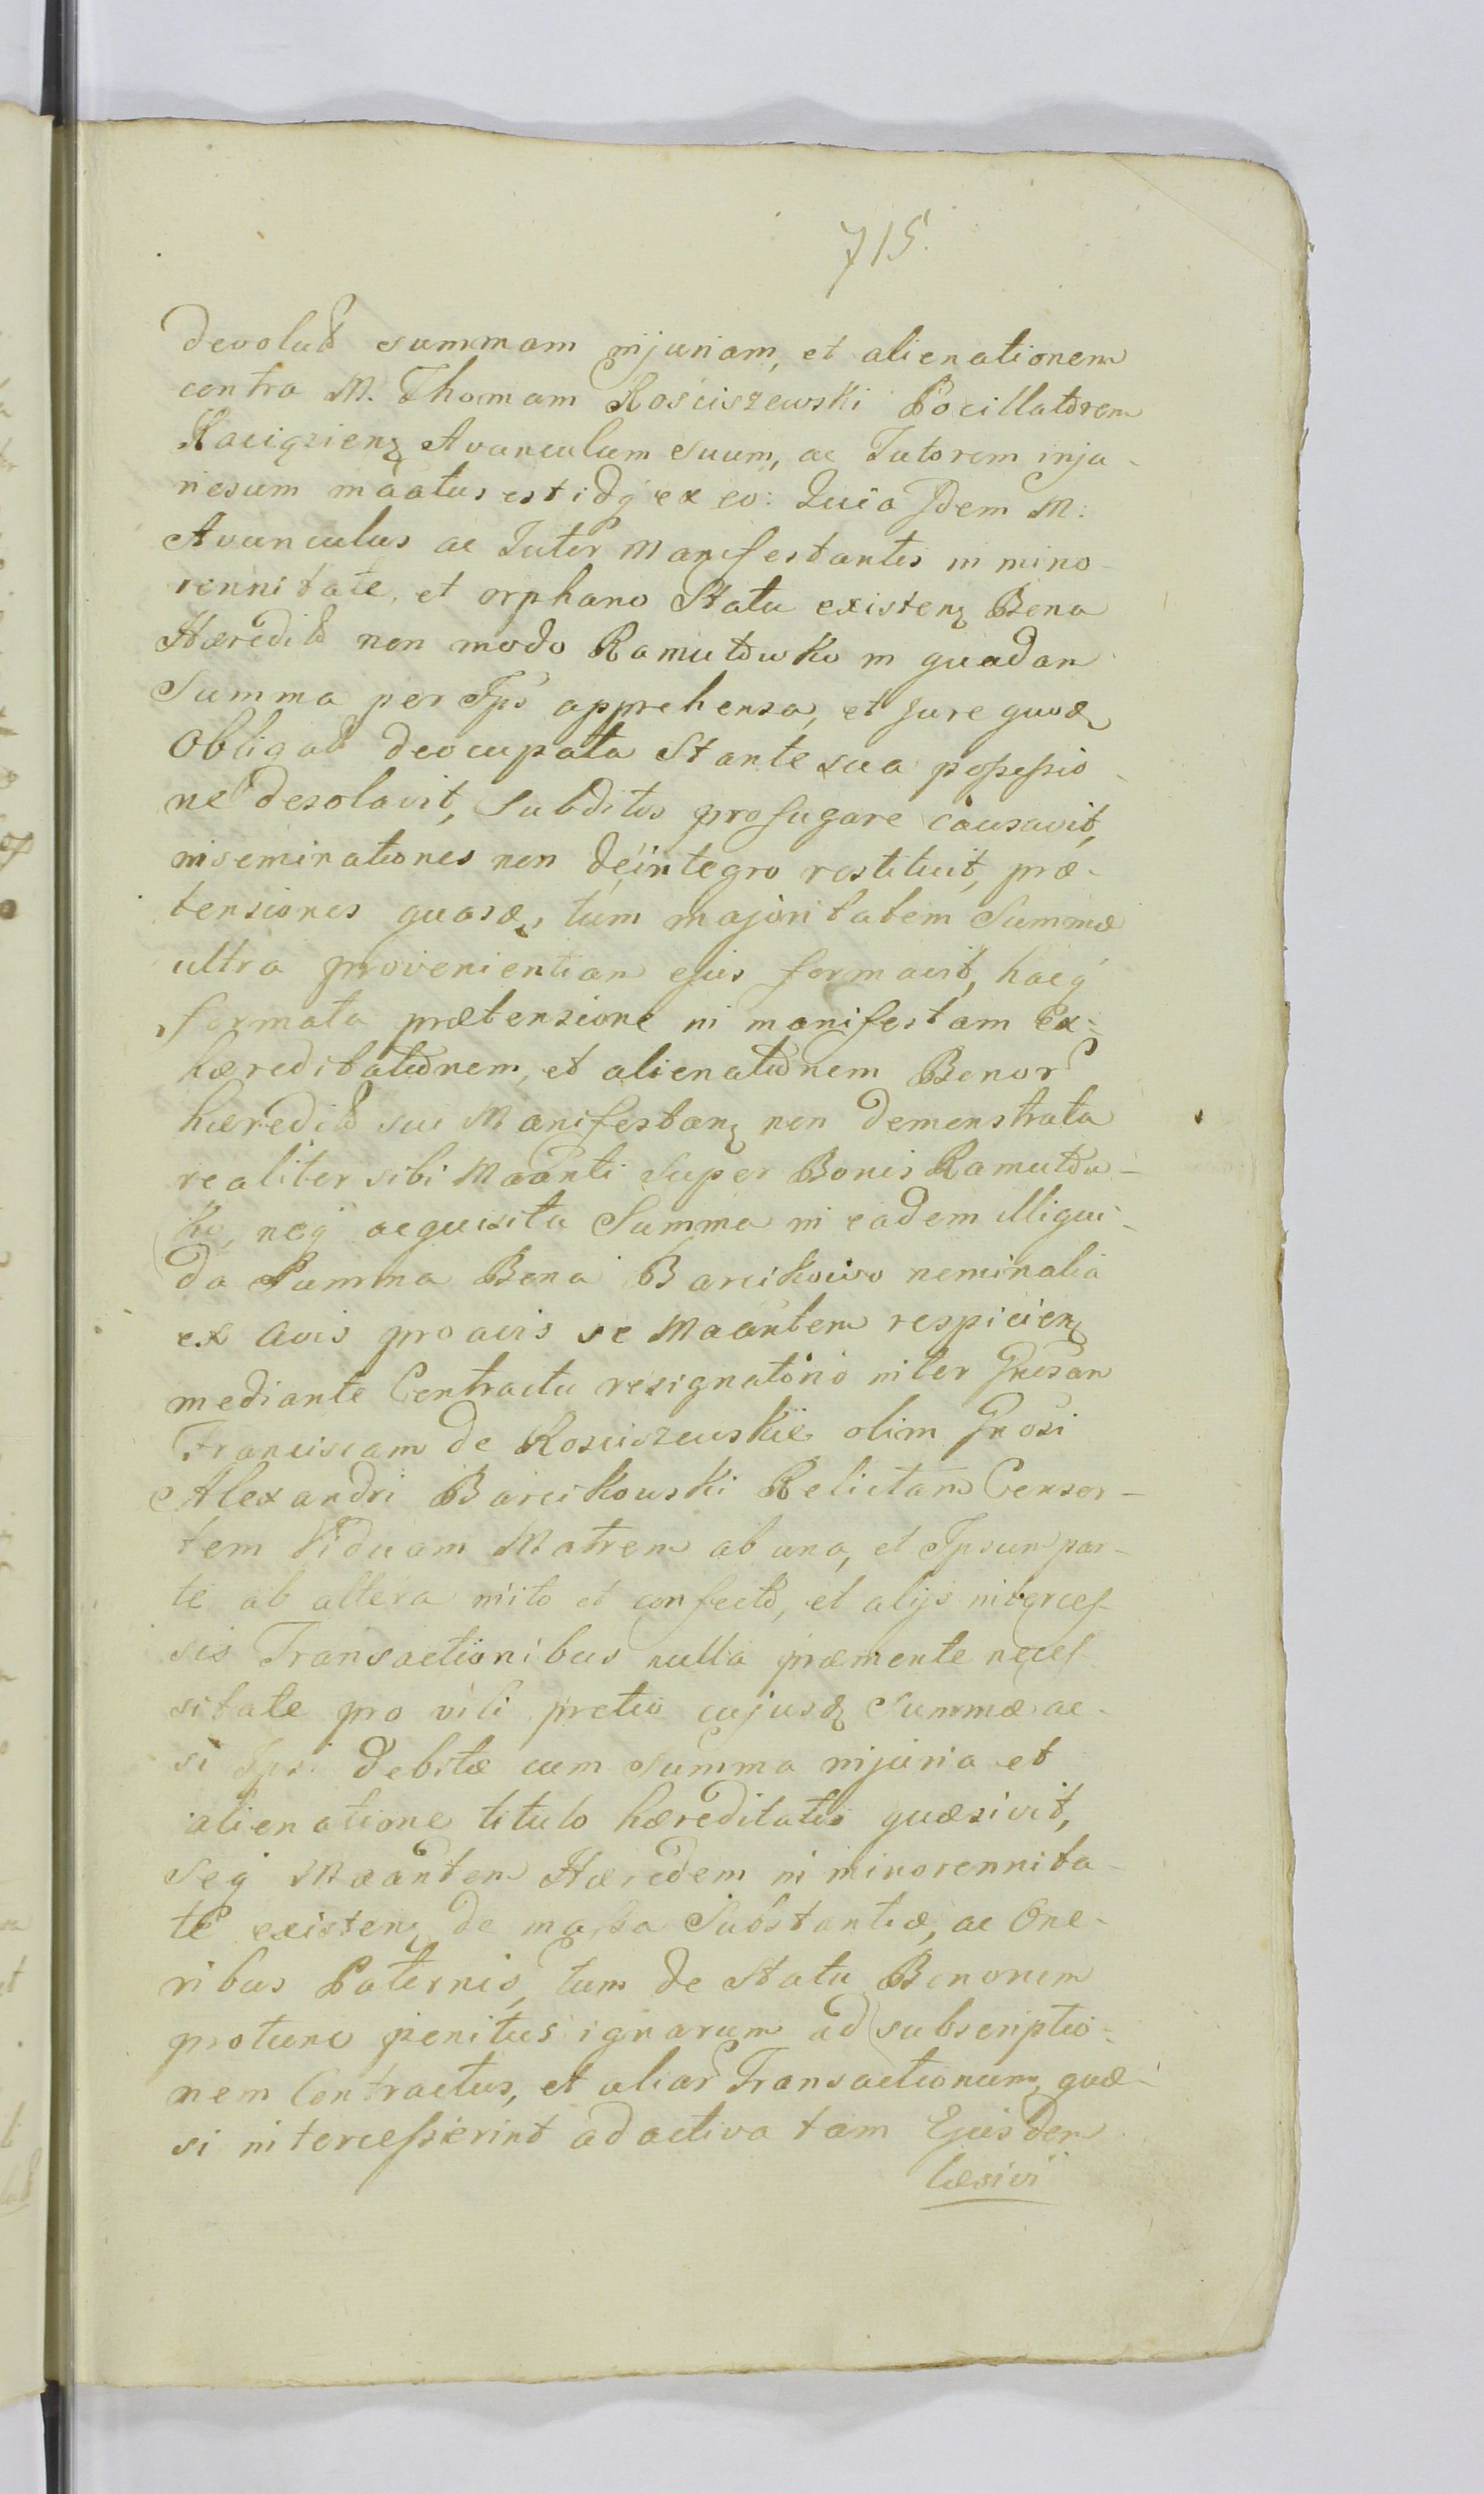 715.
devolut summam injuriam, et alienationem
contra M. Thomam Rosciszewski Pocillatorem
Raciązien Avunculum suum, ac Tutorem inju-
riosum mãatus est idq ex eo: Quia Idem M:
Avunculus ac Tutor Manifestantis in mino-
rennitate, et orphano Statu existen Bona
Hæredit non modo Ramutowko in quadam
Summa per Ips apprehensa, et jure quod
Obligat deocupata Stante sua possessio-
ne desolavit, Subditos profugare causavit,
inseminationes non deintegro restituit, præ-
tensiones quasd, tum majoritatem Summæ
ultra provenientiam ejus formavit, hacq
formata prætensione in manifestam Ex-
hæreditationem, et alienationem Bonor
hæredit sui Manifestan non demonstrata
realiter sibi Maanti super Bonis Ramutow-
ko, neq acquisita Summa in eadem illiqui-
da Summa Bona Barcikowo nominalia
ex Avis proavis se Maantem respicien
mediante Contractu resignatorio inter Gnosam
Franciscam de Rosciszewskie olim Gnosi
Alexandri Barcikowski Relictam Consor-
tem Viduam Matrem ab una, et Ipsum par-
te ab altera inito et confecto, et alijs interces-
sis Transactionibus nulla præmente neces-
sitate pro vili pretio cujusd Summæ ac-
si Ipsi debitæ cum summa injuria et
alienatione titulo hæreditatis quæsivit,
Seq Maantem Hæredem in minorennita-
te existen de massa Substantiæ, ac One-
ribus Paternis, tum de Statu Bonorum
protunc penitus ignarum ad subscriptio-
nem Contractus, et aliar Transactionum, quæ-
si intercesserint adactiva tam Ejusdem
læsivi